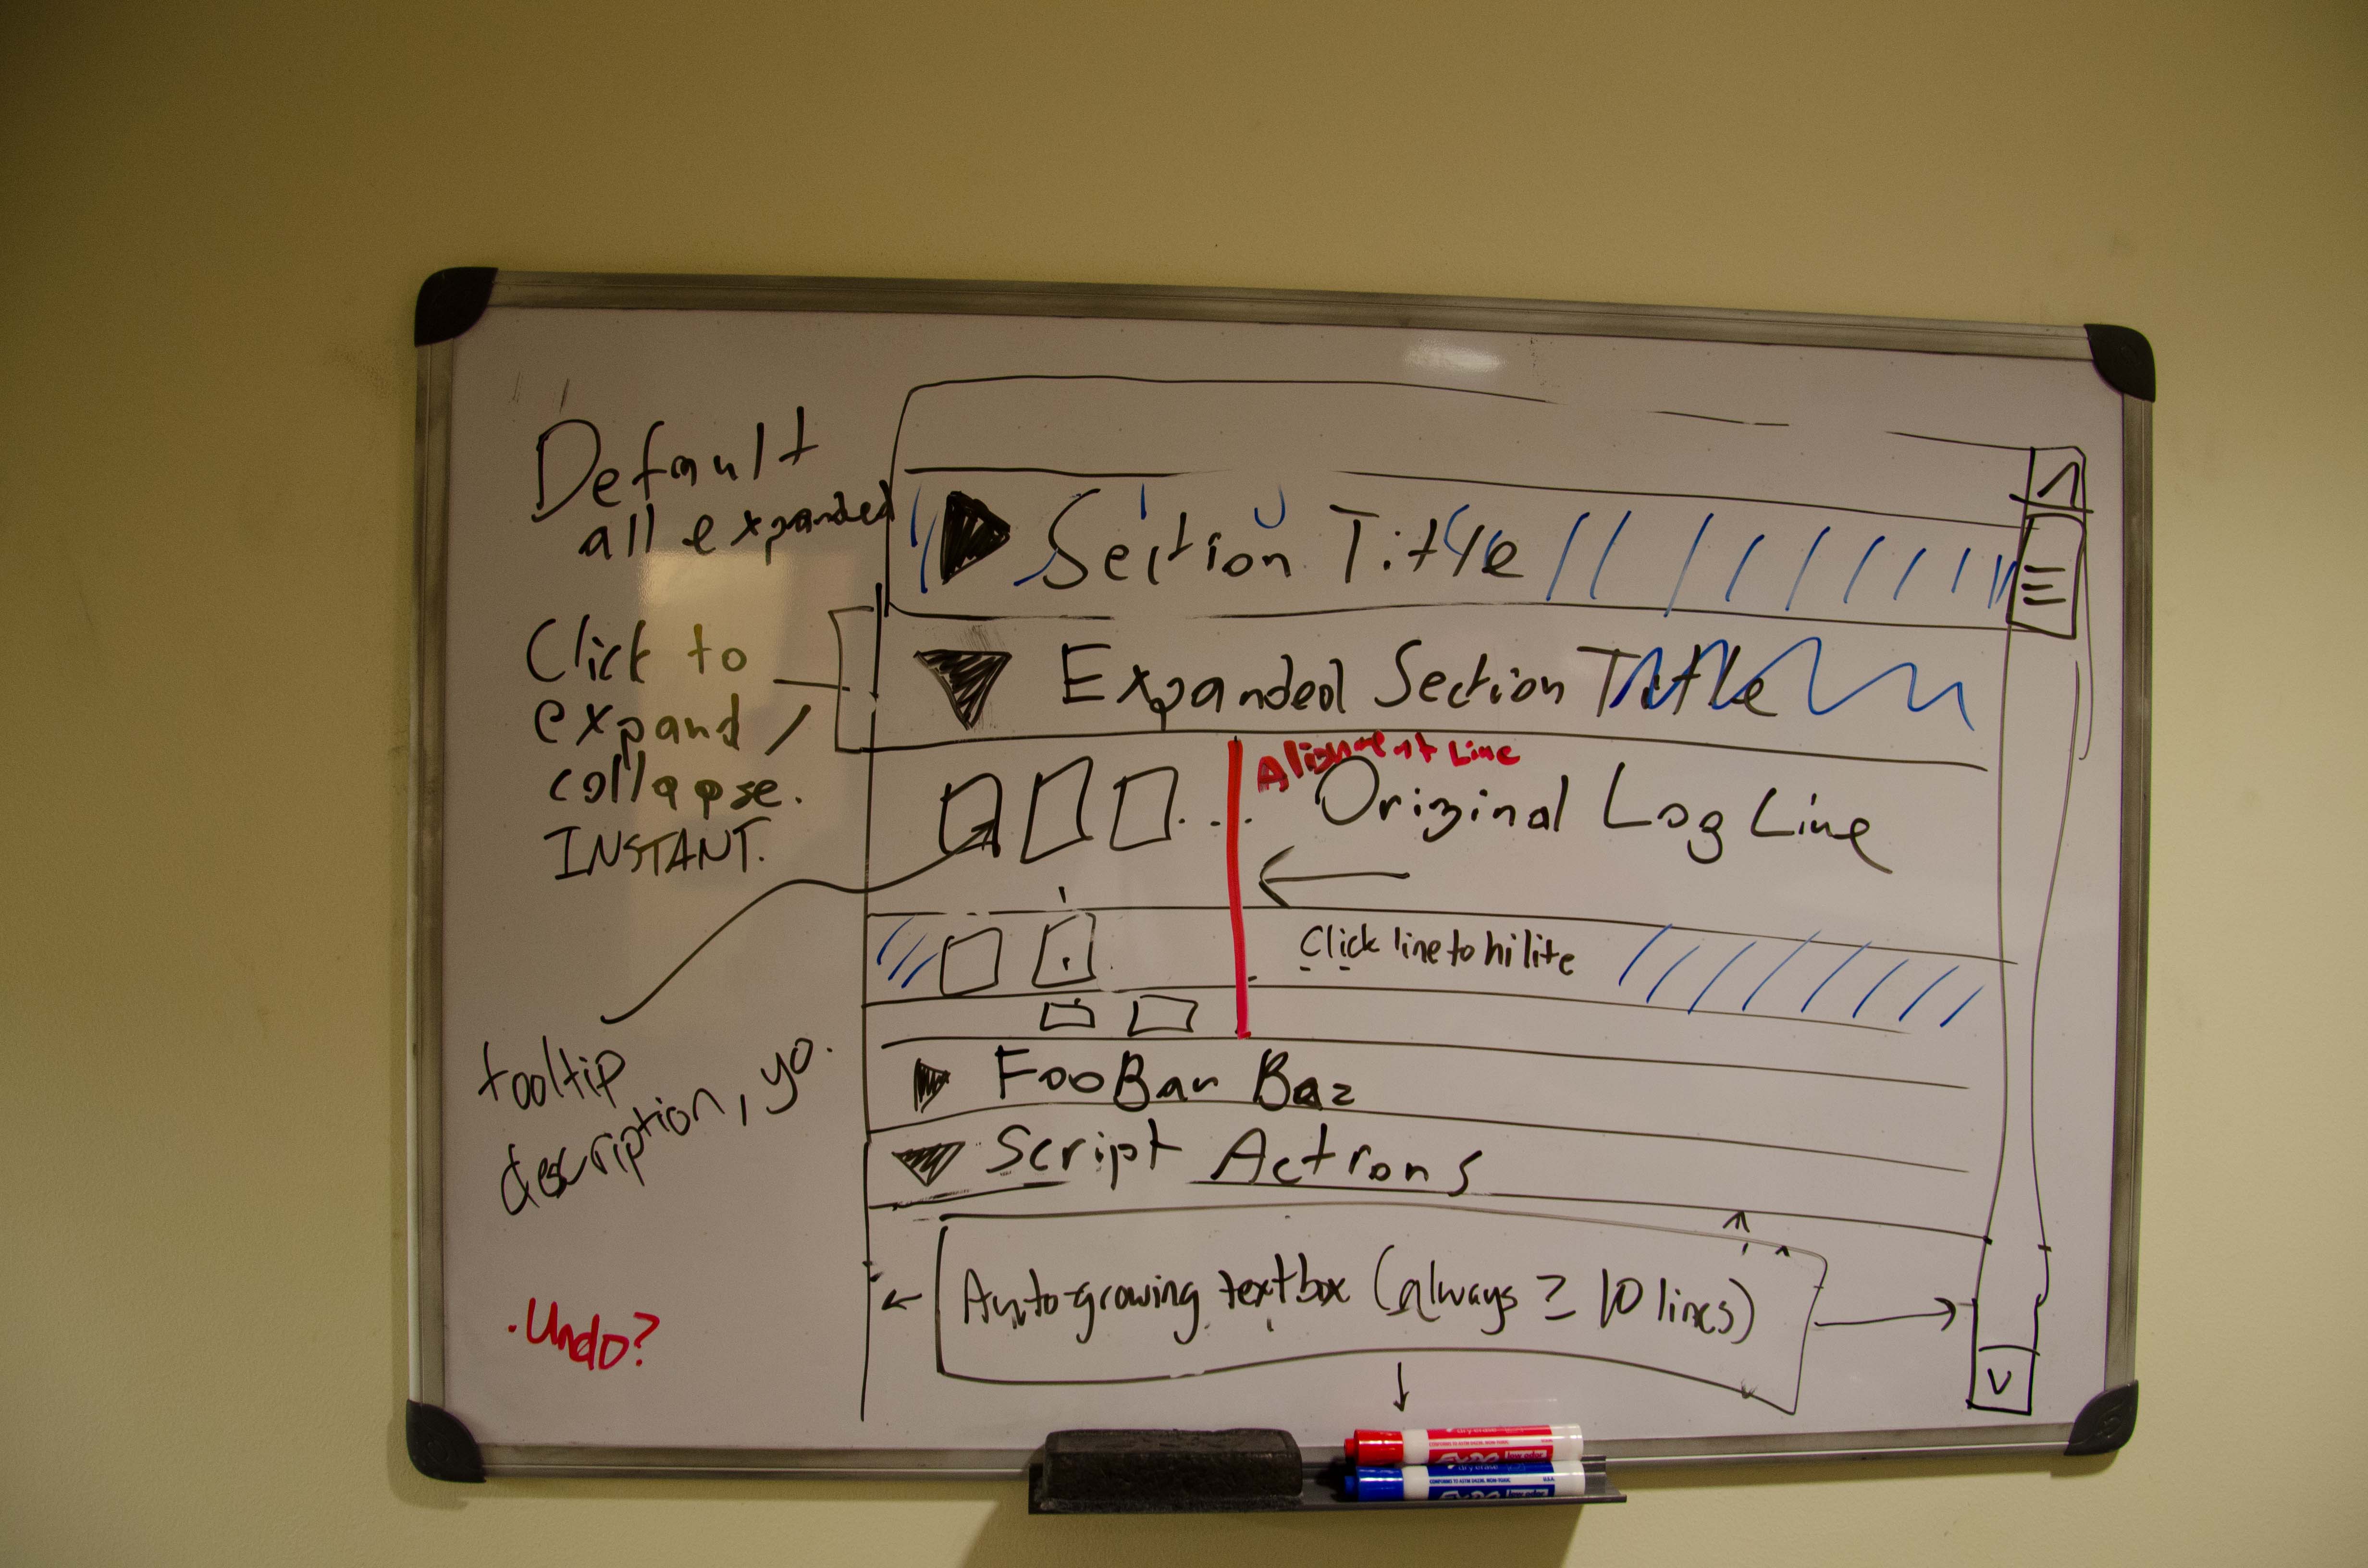 Default
all expanded
Click to
expand /
collapse.
INSTANT.
tooltip
description, yo.
.Undo?
Section Title
Expanded Section Title
Alignment Line
... Original Log Line
Click line to hilite
FooBar Baz
Script Actions
Auto-growing textbox (always ≥ 10 lines)
EXPO
EXPO